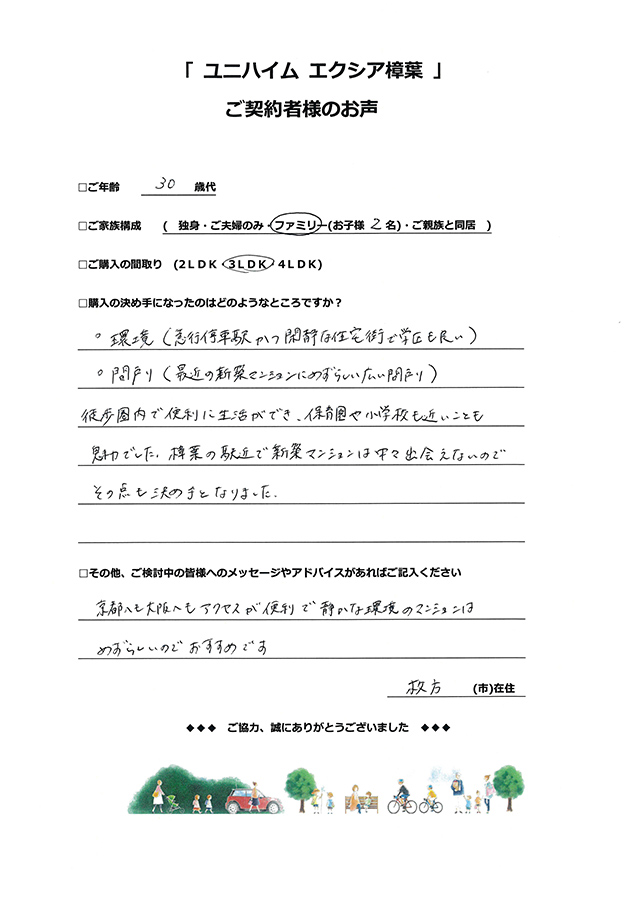 「 ユニハイム エクシア樟葉 」
ご契約者様のお声
□ご年齢 30 歳代
□ご家族構成 ( 独身・ご夫婦のみ・ファミリー(お子様 2 名)・ご親族と同居 )
□ご購入の間取り (2LDK・3LDK・4LDK)
□購入の決め手になったのはどのようなところですか?
○ 環境 (急行停車駅かつ閑静な住宅街で学区も良い)
○ 間取り (最近の新築マンションにめずらしい広い間取り)
徒歩圏内で便利に生活ができ、保育園や小学校も近いことも
魅力でした。樟葉の駅近で新築マンションは中々出会えないので
その点も決め手となりました.
□その他、ご検討中の皆様へのメッセージやアドバイスがあればご記入ください
京都へも大阪へもアクセスが便利で静かな環境のマンションは
めずらしいのでおすすめです
枚方 (市)在住
◆◆◆ ご協力、誠にありがとうございました ◆◆◆